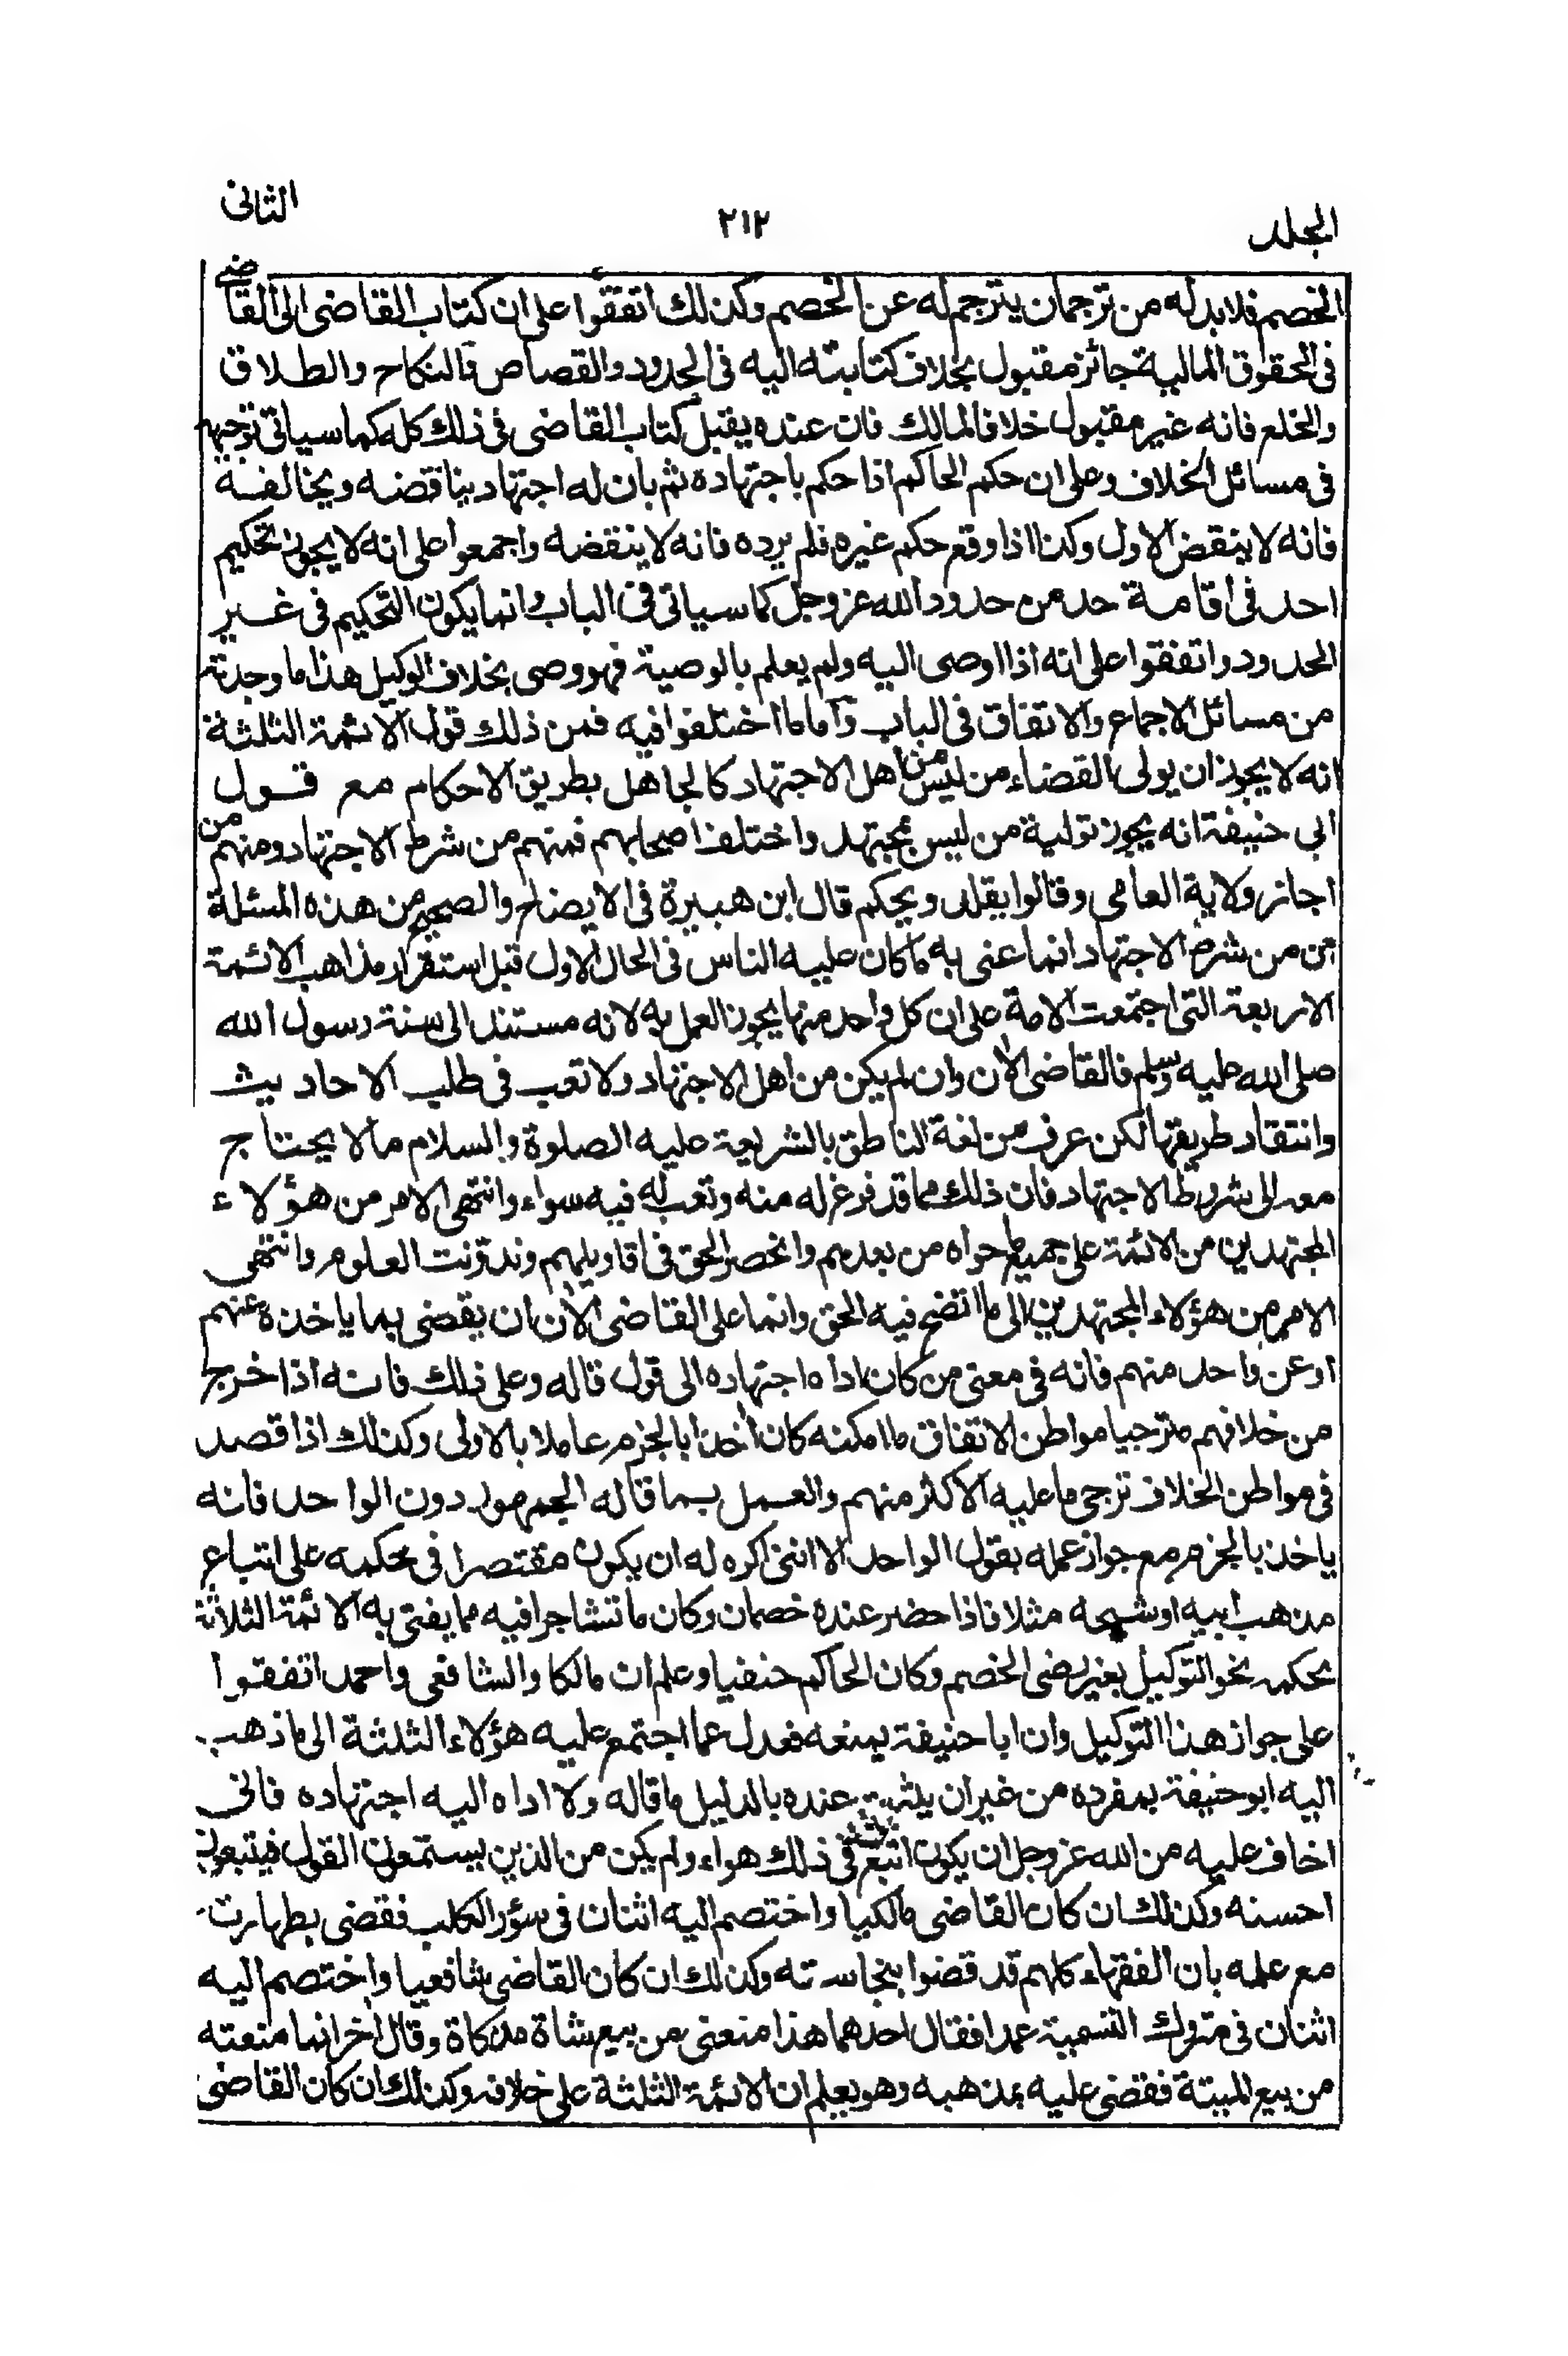 المجلد ٢١٢ الثانى
الخصم فلا بد له من ترجمان يترجم له عن الخصم وكذلك اتفقوا على ان كتاب القاضى الى القاضى
فى الحقوق المالية جائز مقبول بخلاف كتابته اليه فى الحدود والقصاص والنكاح والطلاق
والخلع فانه غير مقبول خلافا لمالك فان عنده يقبل كتاب القاضى فى ذلك كله كما سياتى توجيهه
فى مسائل الخلاف وعلى ان حكم الحاكم اذا حكم باجتهاده ثم بان له اجتهاد يناقضه ويخالفه
فانه لا ينقض الاول وكذا اذا وقع حكم غيره فلم يرده فانه لا ينقضه واجمعوا على انه لا يجوز تحكيم
احد فى اقامة حد من حدود الله عز وجل كما سياتى فى الباب وانما يكون التحكيم فى غير
الحدود واتفقوا على انه اذا اوصى اليه ولم يعلم بالوصية فهو وصى بخلاف الوكيل هذا ما وجدته
من مسائل الاجماع والاتفاق فى الباب واما ما اختلفوا فيه فمن ذلك قول الائمة الثلثة
انه لا يجوز ان يولى القضاء من ليس من اهل الاجتهاد كالجاهل بطريق الاحكام مع قول
ابى حنيفة انه يجوز تولية من ليس بمجتهد واختلف اصحابهم فمنهم من شرط الاجتهاد ومنهم من
اجاز ولاية العامى وقالوا يقلد ويحكم قال ابن هبيرة فى الايضاح والصحيح من هذه المسئلة
ان من شرط الاجتهاد انما عنى به ما كان عليه الناس فى الحال الاول قبل استقرار مذاهب الائمة
الاربعة التى اجتمعت الامة على ان كل واحد منها يجوز العمل به لانه مستند الى سنة رسول الله
صلى الله عليه وسلم فالقاضى الآن وان لم يكن من اهل الاجتهاد ولا تعب فى طلب الاحاديث
وانتقاد طريقها لكن عرف من لغة الناطق بالشريعة عليه الصلوة والسلام ما لا يحتاج
معه الى شروط الاجتهاد فان ذلك مما قد فرغ له منه وتعب له فيه سواه وانتهى الامر من هؤلاء
المجتهدين من الائمة على جميع ما حواه من بعدهم وانحصر الحق فى اقاويلهم وتدونت العلوم وانتهى
الامر من هؤلاء المجتهدين الى ما اتضح فيه الحق وانما على القاضى الآن ان يقضى بما ياخذه عنهم
او عن واحد منهم فانه فى معنى من كان اداه اجتهاده الى قول قاله وعلى ذلك فانه اذا خرج
من خلافهم مترجيا مواطن الاتفاق ما امكنه كان آخذا بالجزم عاملا بالاولى وكذلك اذا قصد
فى مواطن الخلاف ترجى ما عليه الاكثر منهم والعمل بما قاله الجمهور دون الواحد فانه
ياخذ بالجزم مع جواز عمله بقول الواحد الا اننى اكره له ان يكون مقتصرا فى حكمه على اتباع
مذهب ابيه او شيخه مثلا فاذا حضر عنده خصمان وكان ما تشاجرا فيه مما يفتى به الائمة الثلاثة
بحكمه نحو التوكيل بغير رضى الخصم وكان الحاكم حنفيا وعلم ان مالكا والشافعى واحمد اتفقوا
على جواز هذا التوكيل وان ابا حنيفة يمنعه فعدل عما اجتمع عليه هؤلاء الثلثة الى ما ذهب
اليه ابو حنيفة بمفرده من غير ان يثبت عنده بالدليل ما قاله ولا اداه اليه اجتهاده فانى
اخاف عليه من الله عز وجل ان يكون اتبع فى ذلك هواه ولم يكن من الذين يستمعون القول فيتبعون
احسنه وكذلك ان كان القاضى مالكيا واختصم اليه اثنان فى سؤر الكلب فقضى بطهارته
مع علمه بان الفقهاء كلهم قد قضوا بنجاسته وكذلك ان كان القاضى شافعيا واختصم اليه
اثنان فى متروك التسمية عمدا فقال احدهما هذا منعنى من بيع شاة مذكاة وقال آخر انما منعته
من بيع الميتة فقضى عليه بمذهبه وهو يعلم ان الائمة الثلثة على خلافه وكذلك ان كان القاضى